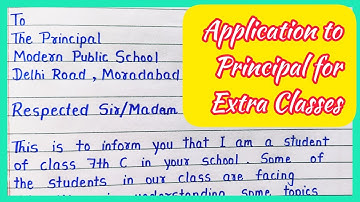 To
The Principal
Modern Public School
Delhi Road, Moradabad
Respected Sir/Madam
This is to inform you that I am a student
of class 7th C in your school. Some of
the students in our class are facing
understanding some topics
Application to
Principal for
Extra Classes